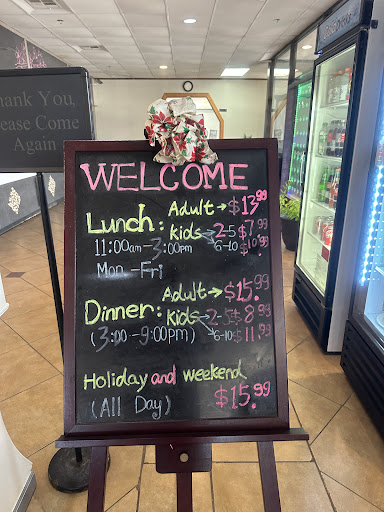 Thank You,
Please Come
Again
WELCOME
Lunch: Adult→$13.99
Kids 2-5 $7.99
11:00am-3:00pm 6-10 $10.99
Mon-Fri
Dinner: Adult→$15.99
Kids 2-5 $8.99
(3:00-9:00pm) 6-10 $11.99
Holiday and weekend
(All Day) $15.99